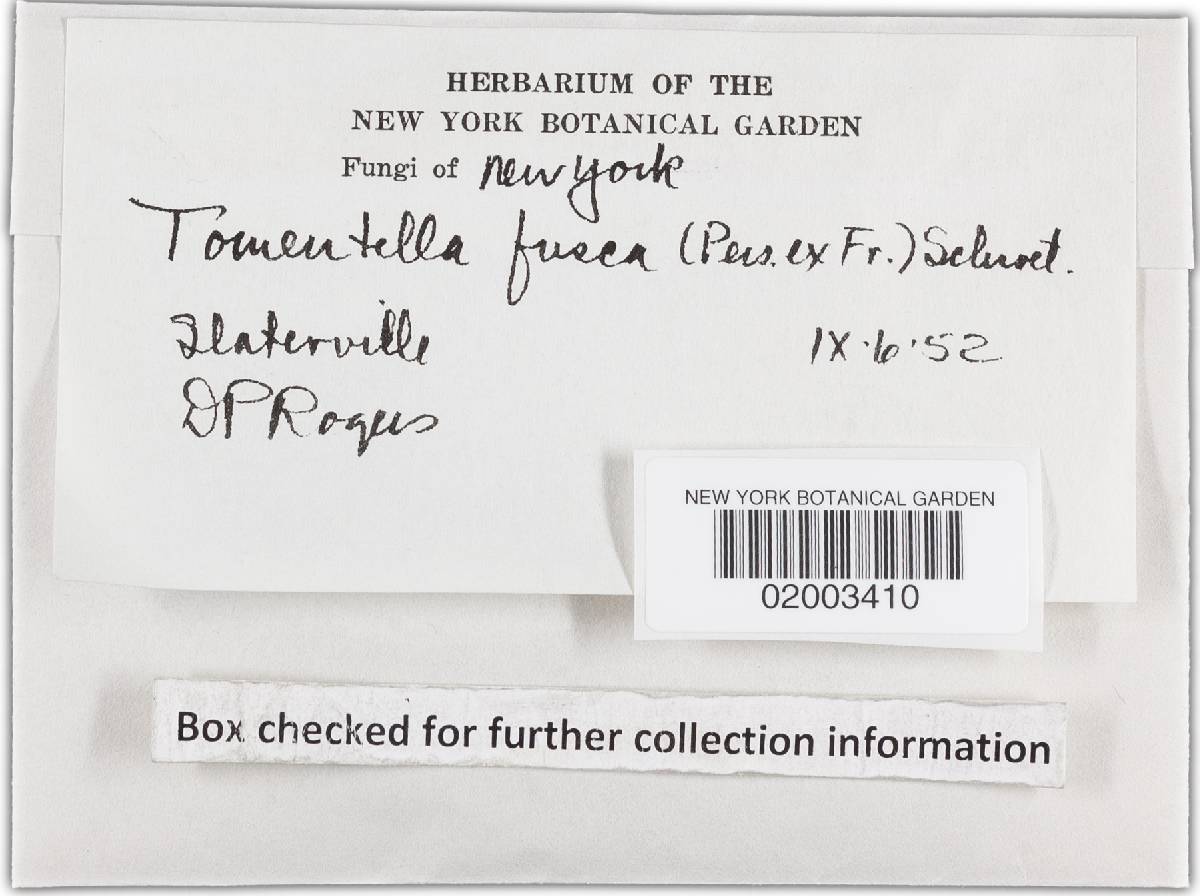 HERBARIUM OF THE
NEW YORK BOTANICAL GARDEN
Fungi of New York
Tomentella fusca (Pers. ex Fr.) Schroet.
Slaterville IX·6·52
DPRogers
NEW YORK BOTANICAL GARDEN
02003410
Box checked for further collection information